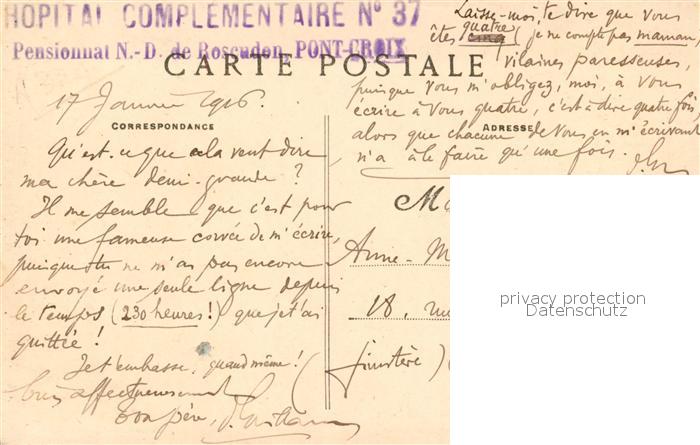 HOPITAL COMPLÉMENTAIRE N° 37
Pensionnat N.-D. de Roscudon, PONT-CROIX
CARTE POSTALE
17 Janvier 1916.
CORRESPONDANCE
Qu'est-ce que cela veut dire
ma chère demi-grande ?
Il me semble que c'est pour
toi une fameuse corvée de m'écrire,
puisque tu ne m'as pas encore
envoyé une seule ligne depuis
le temps (230 heures !) que je t'ai
quittée !
Je t'embrasse, quand même !
bien affectueusement
ton père,
Laisse-moi te dire que vous
êtes quatre cinq (je ne compte pas maman)
vilaines paresseuses,
puisque vous m'obligez, moi, à vous
écrire à vous quatre, c'est à dire quatre fois,
alors que chacune de vous en m'écrivant
n'a à le faire qu'une fois.
ADRESSE
M
Anne-M
18, rue
finistère)
privacy protection
Datenschutz